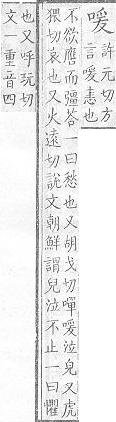 喛
許元切方
言喛恚也
不欲應而彊荅一曰愁也又胡戈切嘽喛泣皃又虎
猥切哀也又火遠切說文朝鮮謂兒泣不止一曰懼
也又呼玩切
文一重音四